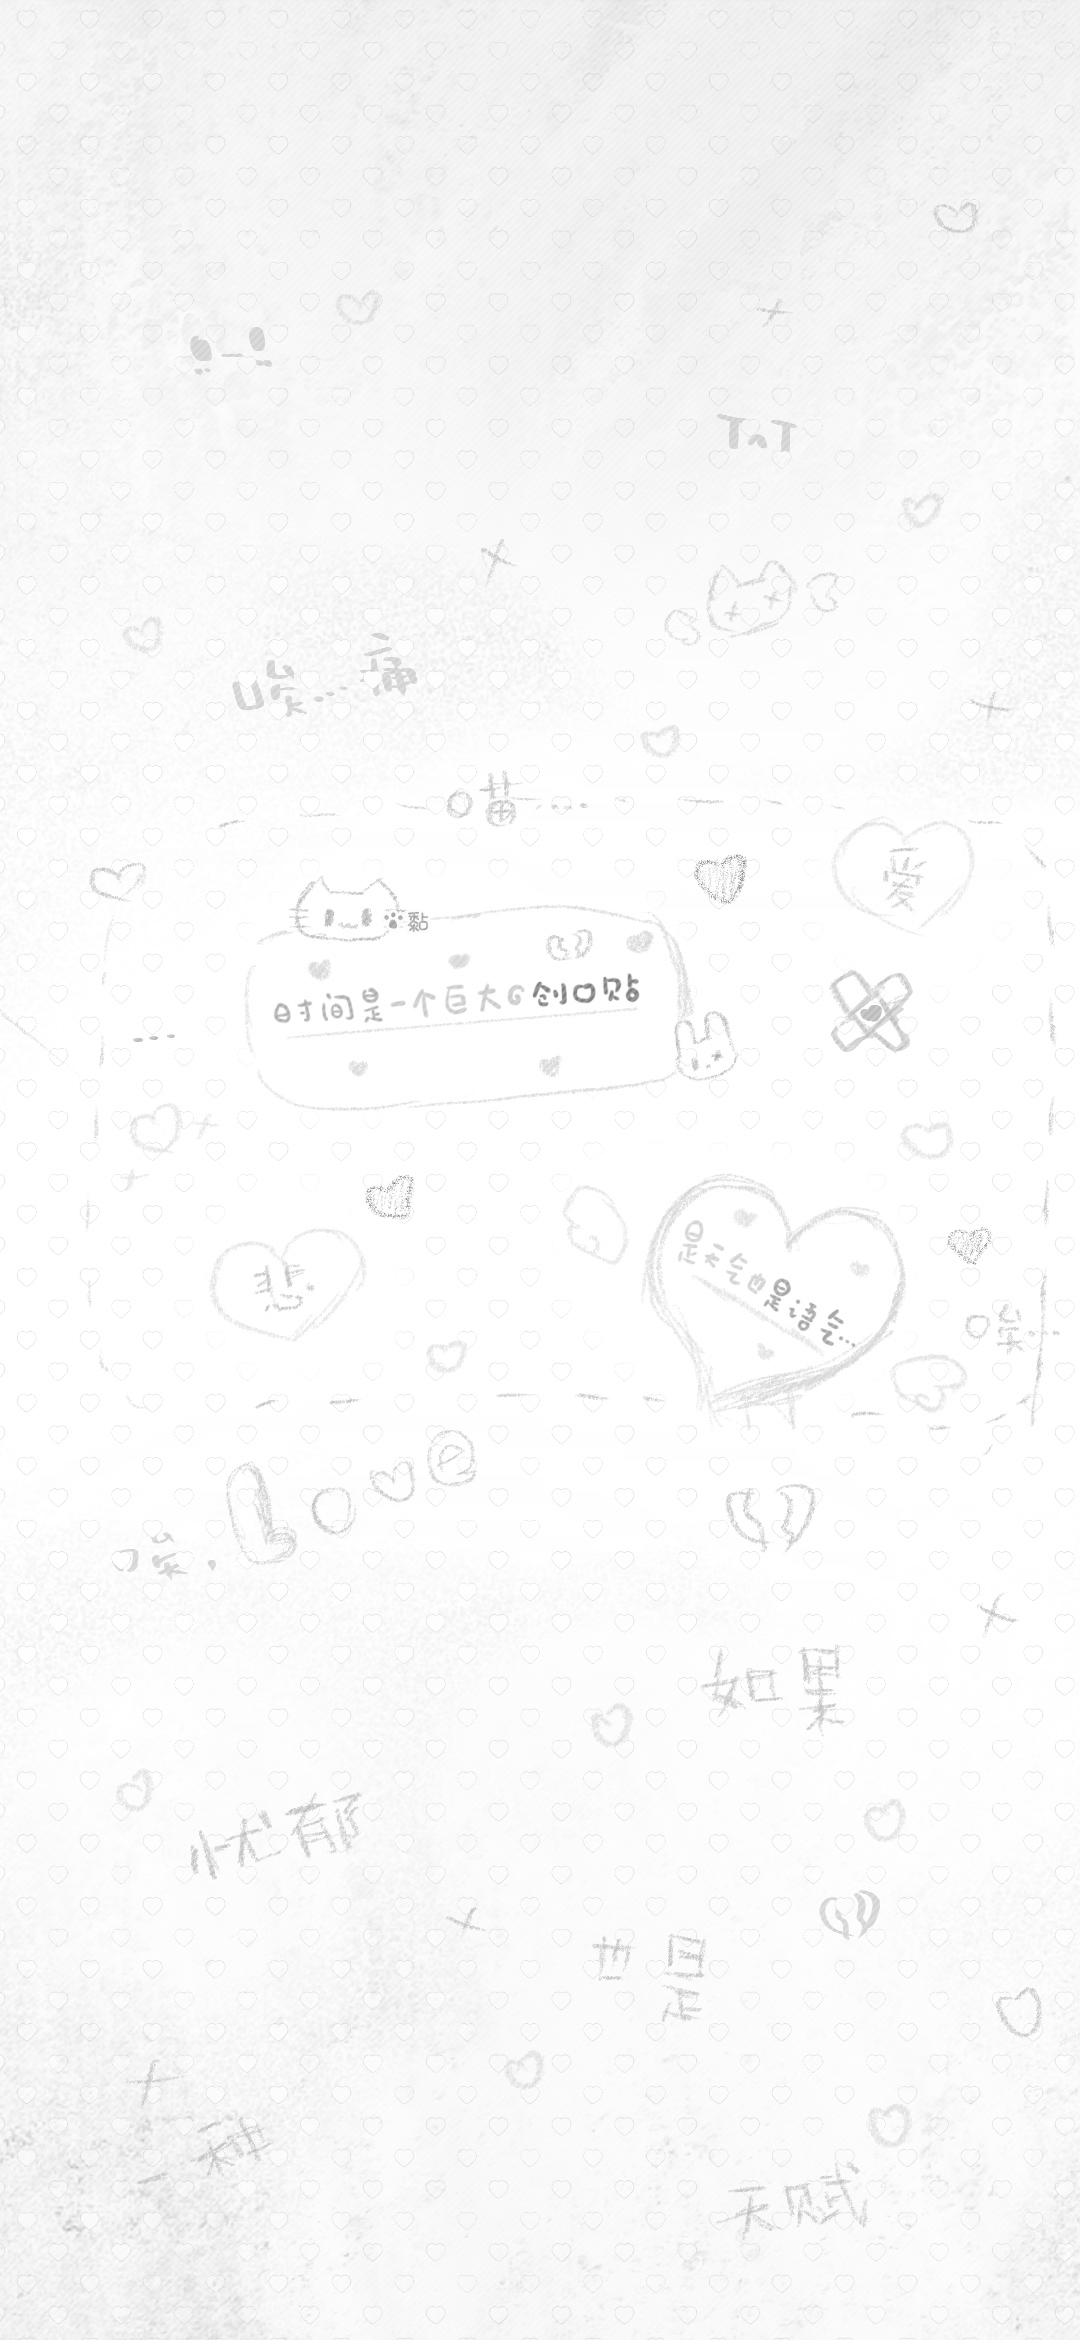 TnT
唉...痛
喵....
爱
黏
时间是一个巨大の创口贴
...
悲
是天气也是语气...
唉...
Love
唉.
如果
忧郁
也是
一种
天赋